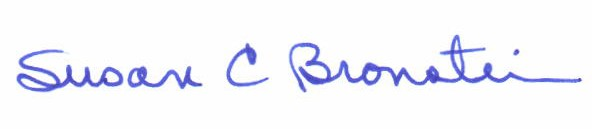 Susan C Bronstein